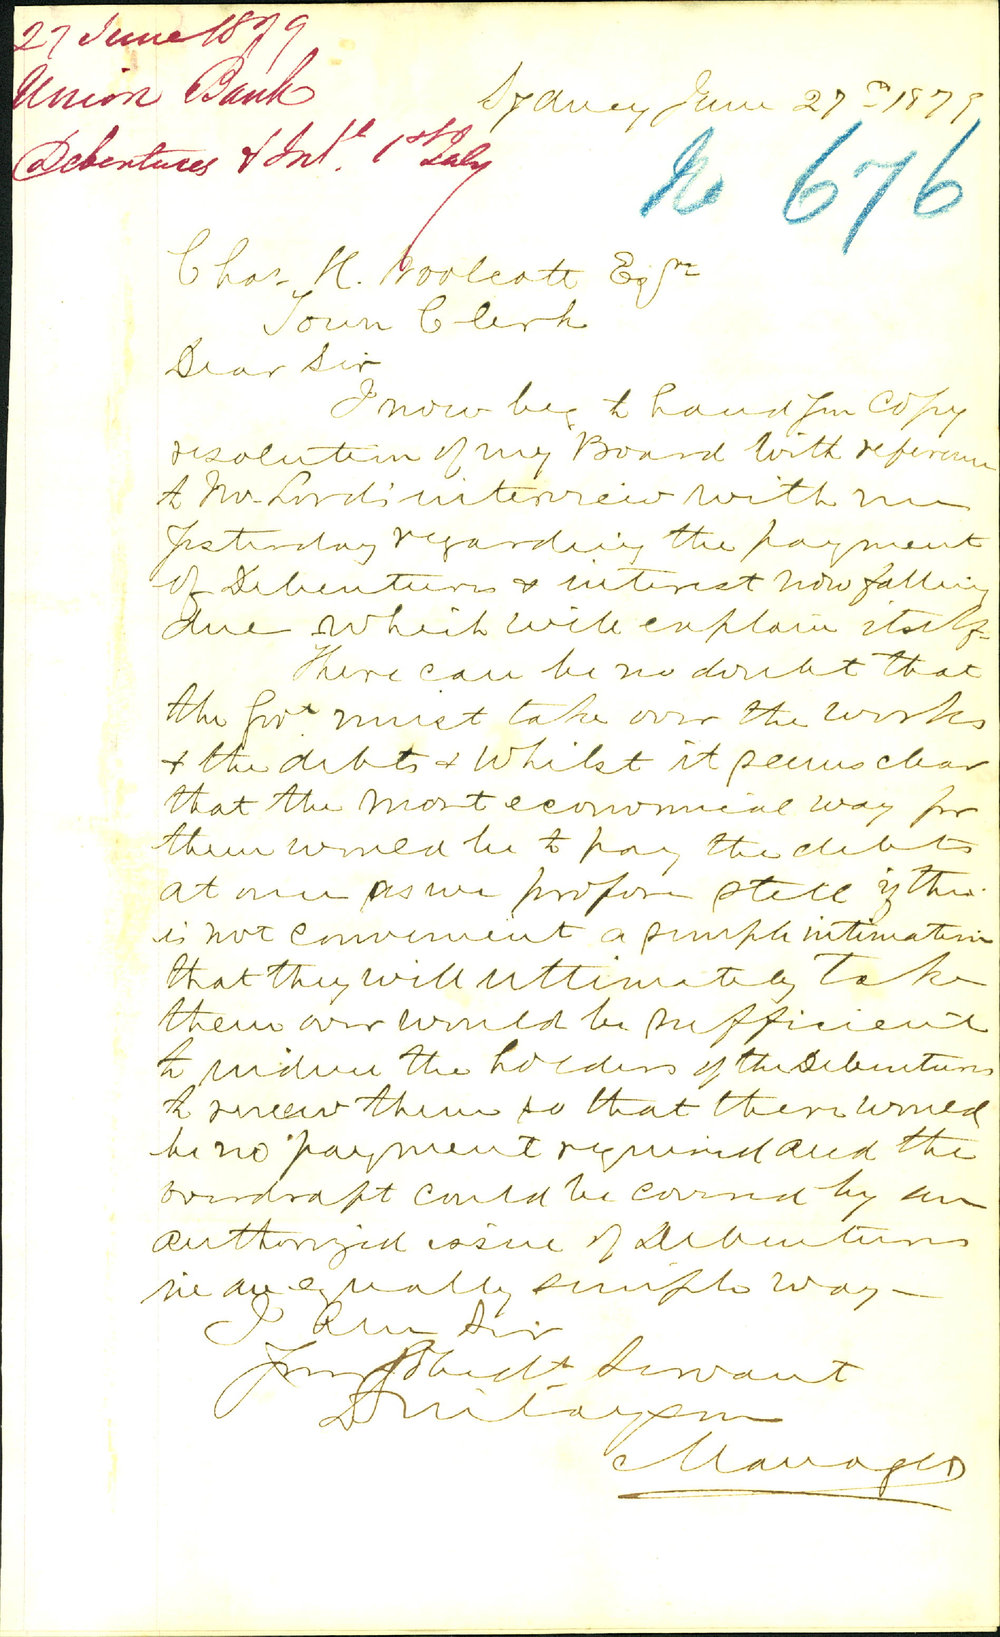 27 June 1879
Union Bank
Debentures & Int. 1st July
Sydney June 27th 1879
No 676
Chas. H. Woolcott Esqre
Town Clerk
Dear Sir
I now beg to hand you Copy
resolution of my Board with reference
to Mr. Lord's interview with me
yesterday regarding the payment
of Debentures & interest now falling
due which will explain itself
There can be no doubt that
the Govt must take over the works
& the debts & whilst it seems clear
that the most economical way for
them would be to pay the debts
at once as we propose still if this
is not convenient a simple intimation
that they will ultimately take
them over would be sufficient
to induce the holders of the Debentures
to renew them so that there would
be no payment required and the
overdraft could be covered by an
authorized issue of Debentures
in an equally simple way —
I am Sir
Your Obedt Servant
Manager